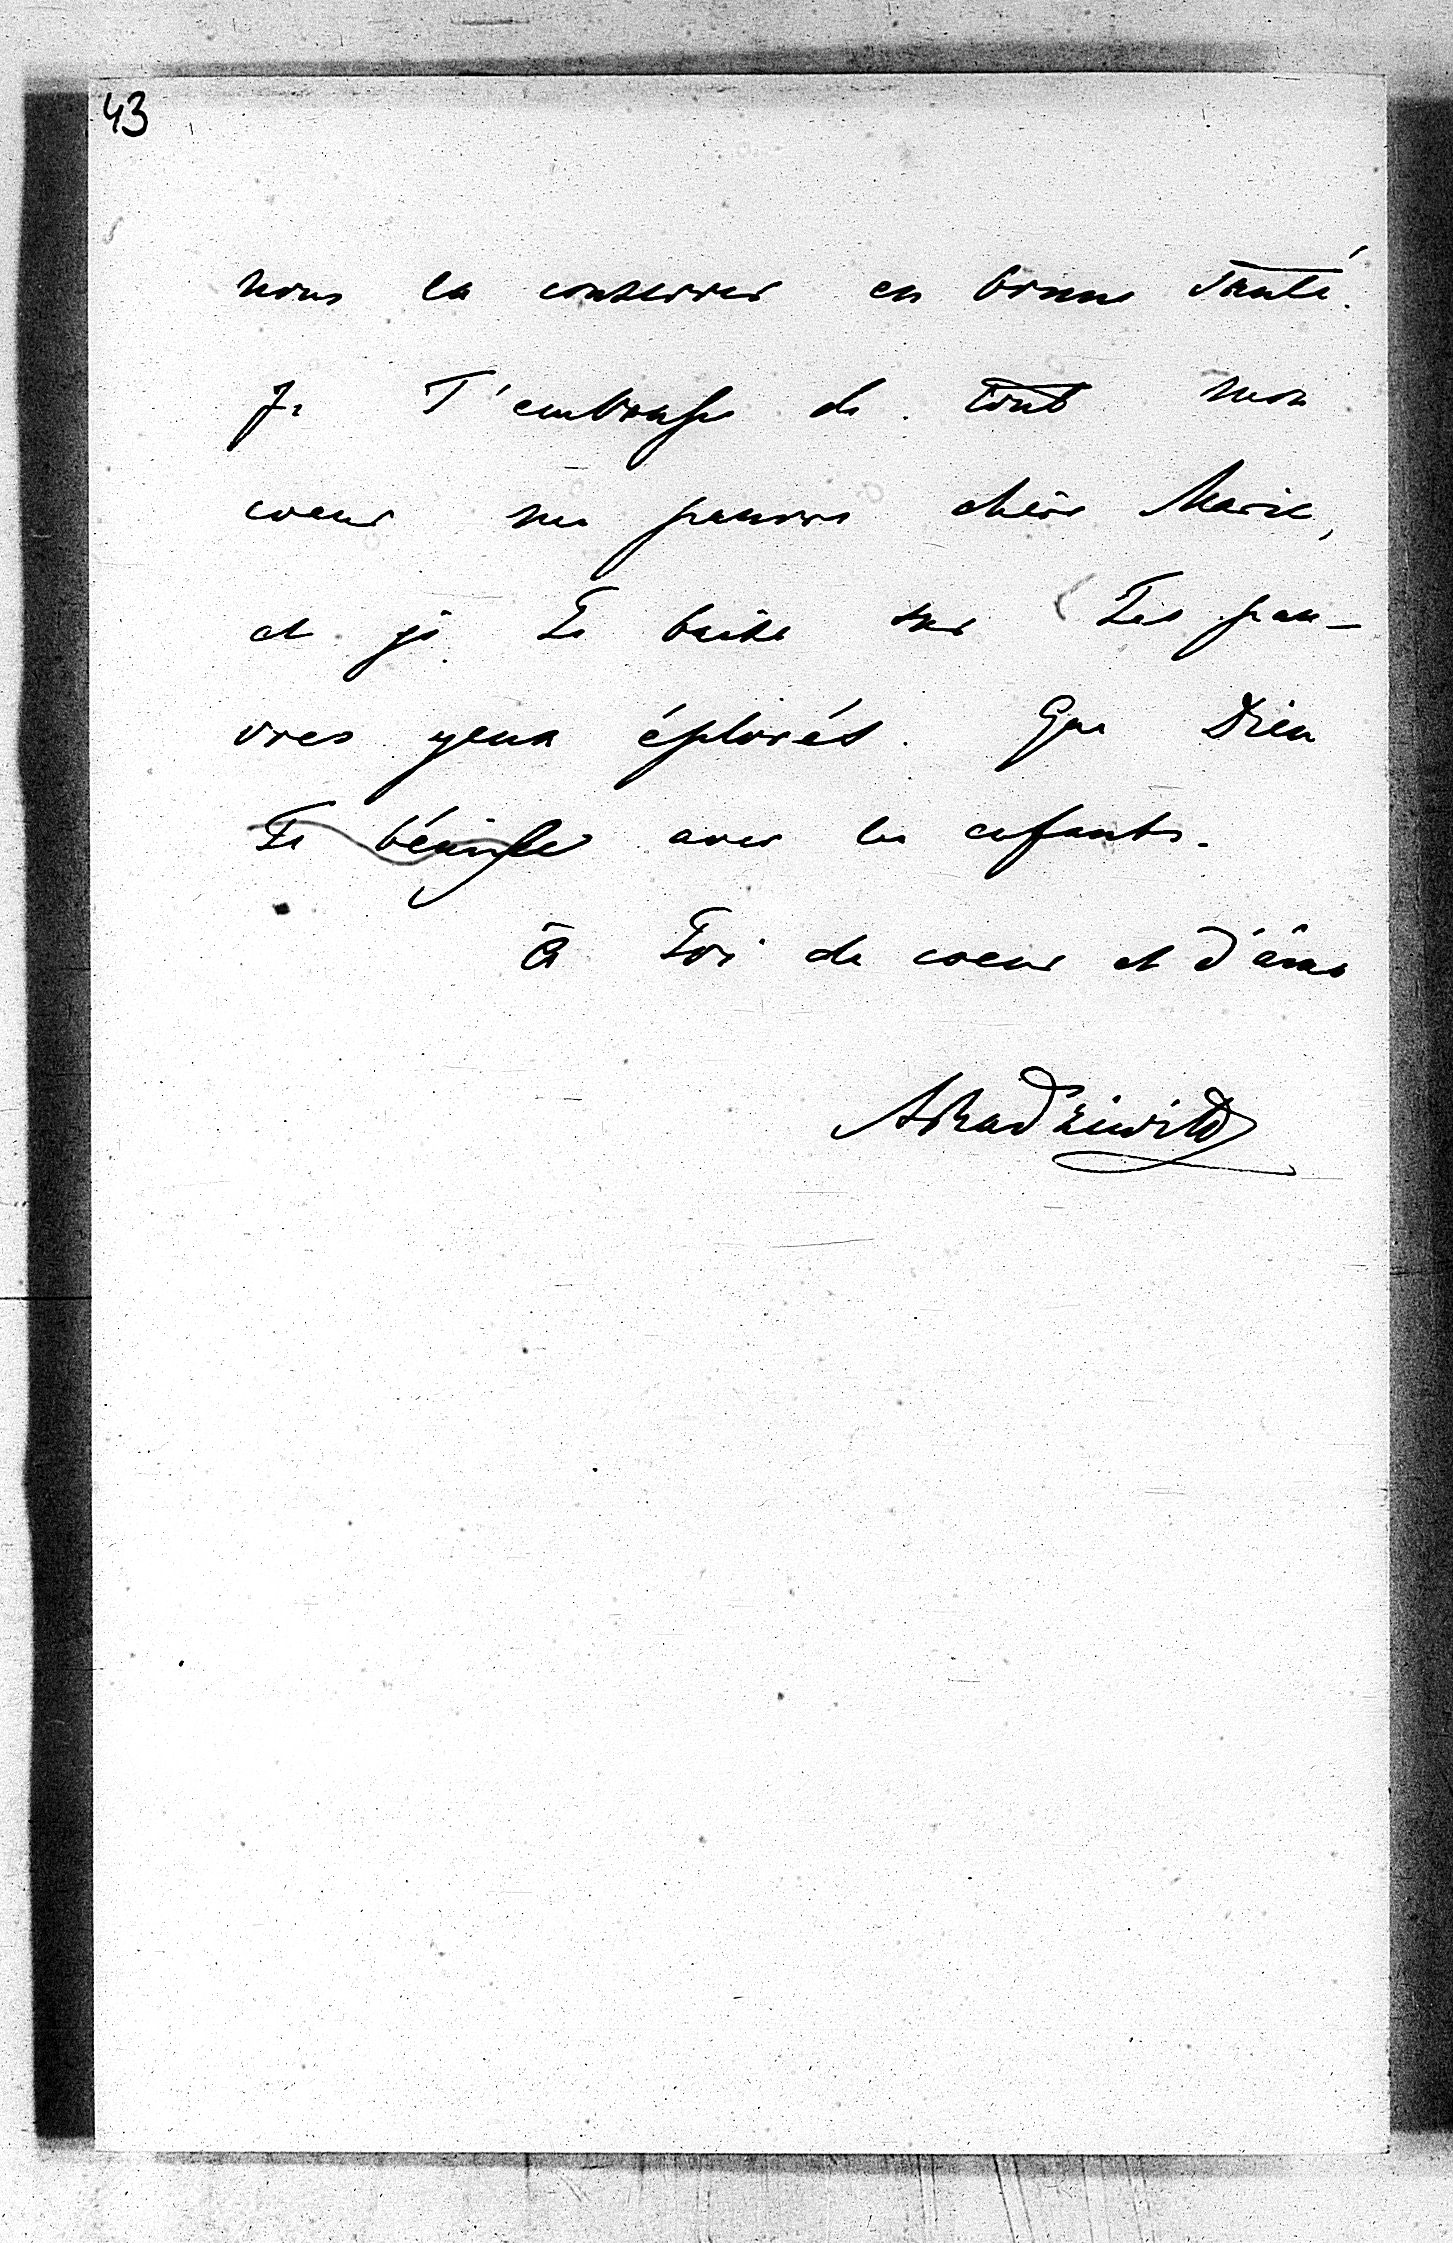 43
nous la conserver en bonne santé.
Je T'embrasse de tout mon
coeur ma pauvre chère Marie,
et je Te baise sur Tes pau-
vres yeux éplorés. Que Dieu
Te bénisse avec les enfants.
à Toi de coeur et d'âme
ARadziwill